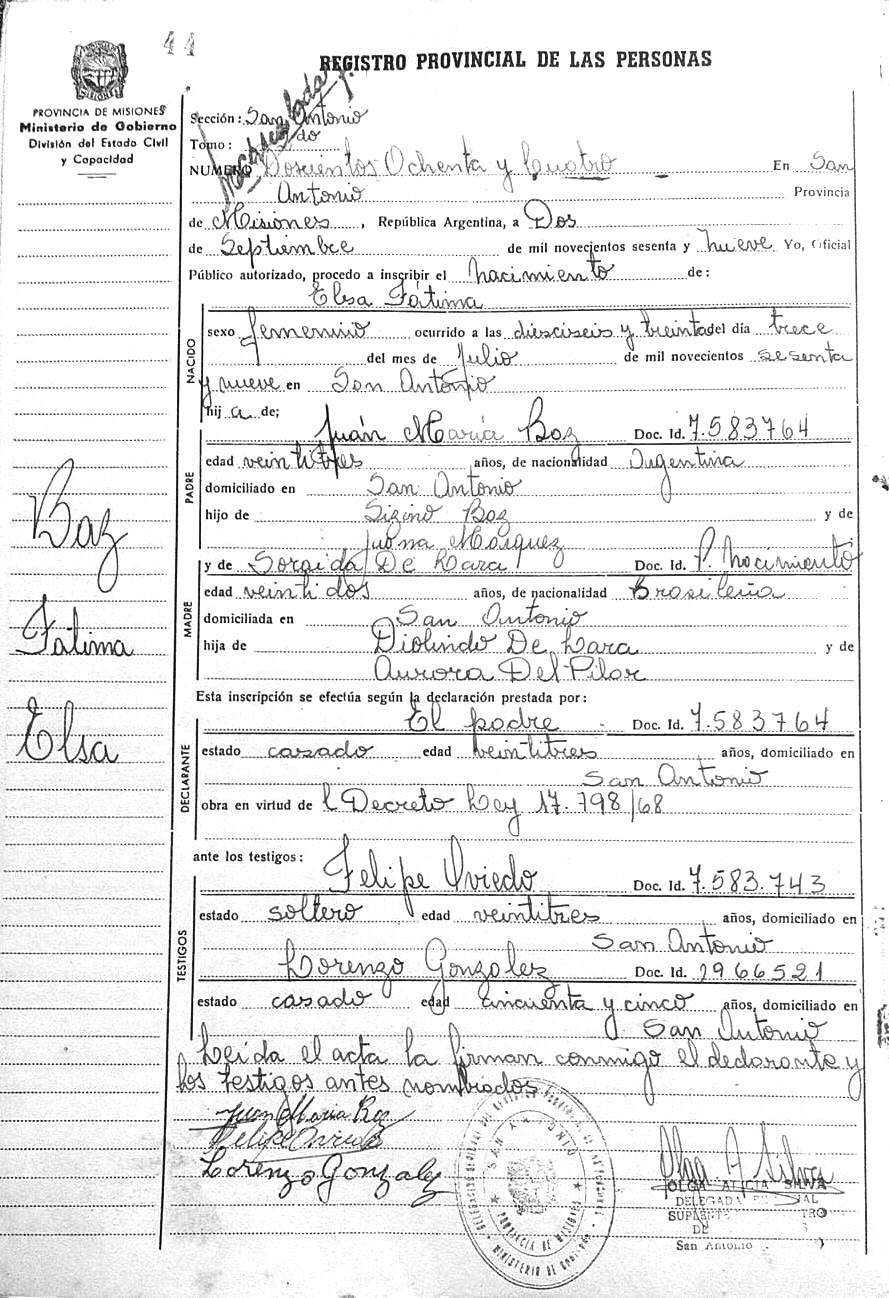 44
REGISTRO PROVINCIAL DE LAS PERSONAS
PROVINCIA DE MISIONES
Ministerio de Gobierno
División del Estado Civil
y Capacidad
Sección: San Antonio
Tomo:
NUMERO Doscientos Ochenta y Cuatro En San
Antonio Provincia
de Misiones, República Argentina, a Dos
de Septiembre de mil novecientos sesenta y nueve Yo, Oficial
Público autorizado, procedo a inscribir el nacimiento de:
Elsa Fátima
NACIDO
sexo femenino ocurrido a las diesciseis y treinta del día trece
del mes de Julio de mil novecientos sesenta
y nueve en San António
hij a de;
Juán María Boz Doc. Id. 7.583764
PADRE
edad veintitres años, de nacionalidad Argentina
domiciliado en San Antonio
hijo de Sizino Boz y de
Juana Márquez
y de Soraida De Lara Doc. Id. P. Nacimiento
MADRE
edad veintidos años, de nacionalidad Brasileña
domiciliada en San Antonio
hija de Diolindo De Lara y de
Aurora Del Pilar
Esta inscripción se efectúa según la declaración prestada por:
El padre Doc. Id. 7.583764
DECLARANTE
estado casado edad veintitres años, domiciliado en
San Antonio
obra en virtud de l Decreto Ley 17.798/68
ante los testigos:
Felipe Oviedo Doc. Id. 7.583.743
TESTIGOS
estado soltero edad veintitres años, domiciliado en
San Antonio
Lorenzo Gonzalez Doc. Id. 1966521
estado casado edad cincuenta y cinco años, domiciliado en
San Antonio
Leida el acta la firman conmigo el declarante y
los testigos antes nombrados
Baz
Fátima
Elsa
Juan Maria Boz
Felipe Oviedo
Lorenzo Gonzalez
SAN ANTONIO
PROVINCIA DE MISIONES
MINISTERIO DE GOBIERNO
Olga A Silva
OLGA ALICIA SILVA
DELEGADA
SUPLENTE
DE
San Antonio